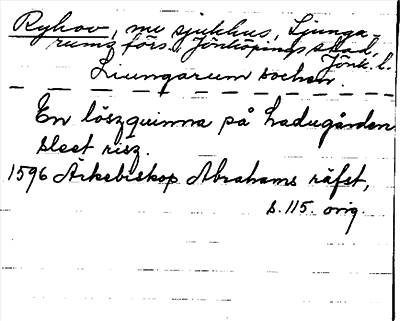 Ryhov, mu sjukhus, Ljunga-
rums förs. i Jönköpings stad,
Jönk. l.
Liungarum sochen.
En löszquinna på Ladugården
slect risz.
1596 Ärkebiskop Abrahams räfst,
s. 115. orig.